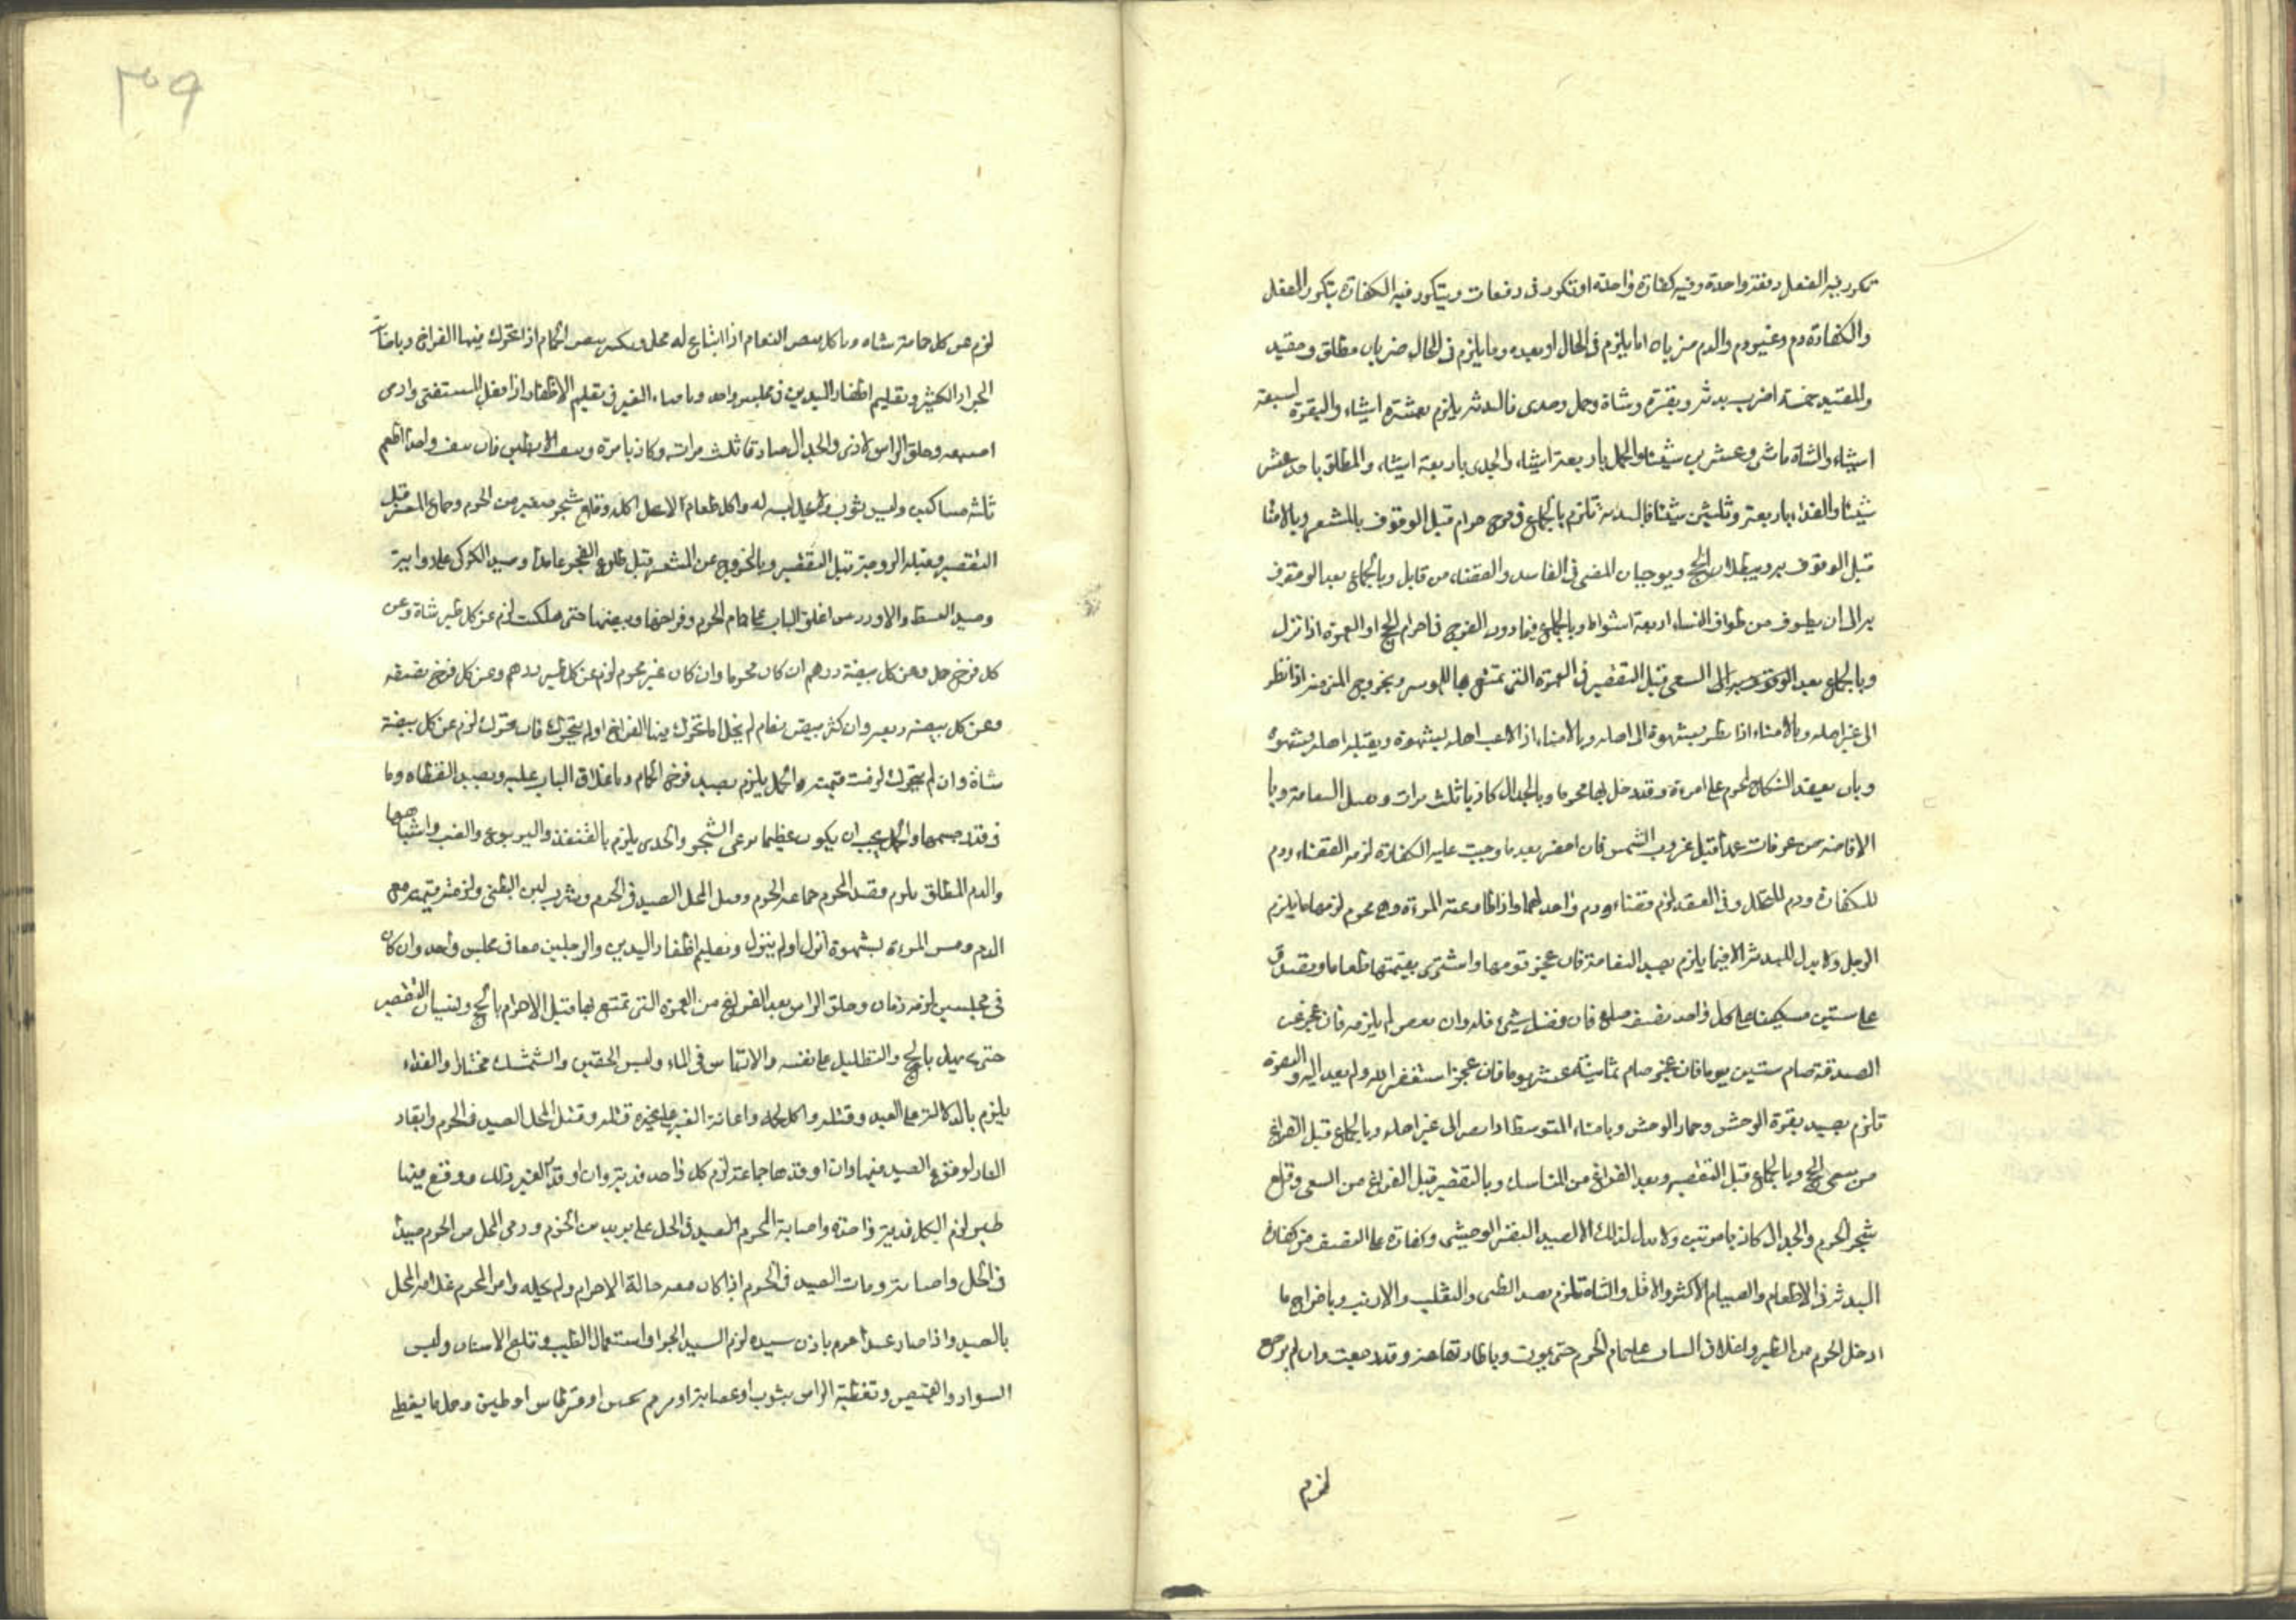 تكرر فيه الفعل دفعة واحدة وفيه كفارة واحدة او تكرر فى دفعات ويتكرر فيه الكفارة بتكرر الفعل
والكفارة دم وغير دم والدم ضربان اما يلزم فى الحال او بعده وما يلزم فى الحال ضربان مطلق ومقيد
والمقيد خمسة اضرب بدنة وبقرة وشاة وحمل وجدى فالبدنة يلزم بعشرة اشياء والبقرة لسبعة
اشياء والشاة باثنى وعشرين شيئا والحمل باربعة اشياء والجدى باربعة اشياء والمطلق باحد عشر
شيئا والفداء باربعة وثلثين شيئا فالبدنة تلزم بالجماع فى فرج حرام قبل الوقوف بالمشعر وبالامنا
قبل الوقوف به ويبطلان الحج ويوجبان المضى فى الفاسد والقضاء من قابل وبالجماع بعد الوقوف
به الى ان يطوف من طواف النساء اربعة اشواط وبالجماع فيما دون الفرج فى احرام الحج او العمرة اذا نزل
وبالجماع بعد الوقوف به الى السعى قبل التقصير فى العمرة التى تمتع بها للموسر وبخروج المنى منه اذا نظر
الى غير اهله وبالامناء اذا نظر بشهوة الى اهله وبالامناء اذا لاعب اهله بشهوة وبقبلة اهله بشهوة
وبان يعقد النكاح لمحرم على امرءة وقد دخل بها محرما وبالجدال كاذبا ثلث مرات وبصيد النعامة وبا
الافاضة من عرفات عمدا قبل غروب الشمس فان احصر بعد ما وجبت عليه الكفارة لزمه القضاء ودم
للكفارة ودم للتحلل وفى العقد لزم قضاء ودم واحد لهما واذا طاوعته المرءة وهى محرم لزمها ما يلزم
الرجل ولا بدل للبدنة الا فيما يلزم بصيد النعامة فان عجز قومها واشترى بقيمتها طعاما وتصدق
على ستين مسكينا على كل واحد نصف صاع فان فضل شىء فله وان نقص لم يلزمه فان عجز عن
الصدقة صام ستين يوما فان عجز صام ثمانية عشر يوما فان عجز استغفر الله ولم يعد اليه والبقرة
تلزم بصيد بقرة الوحش وحمار الوحش وبامناء المتوسط اذا نظر الى غير اهله وبالجماع قبل الفراغ
من سعى الحج وبالجماع قبل التقصير وبعد الفراغ من المناسك وبالتقصير قبل الفراغ من السعى وقلع
شجر الحرم والجدال كاذبا مرتين ولا بدل لذلك الا لصيد البقر الوحشى وكفارة على النصف من كفارة
البدنة فى الاطعام والصيام الاكثر والاقل والشاة تلزم بصيد الظبى والثعلب والارنب وباخراج ما
ادخل الحرم من الطير واغلاق الباب على حمام الحرم حتى يموت وباطارتها وقد رجعت وان لم يرجع
لزم
٣٥٩
لزم عن كل حمامة شاة وباكل بيض النعام اذا ابتاع له محل وبكسر بيض الحمام اذا تحرك فيها الفراخ وباصابة
الجراد الكثير وتقليم اظفار اليدين فى مجلس واحد وبافتاء الغير فى تقليم الاظفار اذا فعل المستفتى وادمى
اصبعه وحلق الراس لاذى والجدال صادقا ثلث مرات وكاذبا مرة ونتف الابطين فان نتف واحدا اطعم
ثلثة مساكين ولبس ثوب لا يحل لبسه له واكل طعام لا يحل اكله وقلع شجر صغير من الحرم وجماع قبل
التقصير وقبلة الزوجة قبل التقصير وبالخروج عن المشعر قبل طلوع الفجر عامدا وصيد الكركى على رواية
وصيد البط والاوز ومن اغلق الباب على حمام الحرم وفراخها وبيضها حتى هلكت لزم عن كل طير شاة وعن
كل فرخ حمل وعن كل بيضة درهم ان كان محرما وان كان غير محرم لزم عن كل طير درهم وعن كل فرخ نصفه
وعن كل بيضة ربعه وان كسر بيض نعام لم يخل اما تحرك فيها الفراخ او لم يتحرك فان تحرك لزم عن كل بيضة
شاة وان لم يتحرك لزمت قيمته والحمل يلزم بصيد فرخ الحمام وباغلاق الباب عليه وبصيد القطاة وما
فى قدر جسمها والحمل يجب ان يكون عظيما رعى الشجر والجدى يلزم بالقنفذ واليربوع والضب واشباهها
والدم المطلق يلزم بعقد المحرم جماعه المحرم وقتل المحل الصيد فى الحرم وشرب لبن الظبى ولزمته قيمته مع
الدم ومس المرءة بشهوة انزل او لم ينزل وتقليم اظفار اليدين والرجلين معا فى مجلس واحد وان كان
فى مجلسين لزمه دمان وحلق الراس بعد الفراغ من العمرة التى تمتع بها قبل الاحرام بالحج ونسيان التقصير
حتى يهل بالحج والتظليل على نفسه والارتماس فى الماء ولبس الخفين والشمشك مختارا والفداء
يلزم بالدلالة على الصيد وقتله واكل لحمه واعانة الغير على قتله وقتل المحل الصيد فى الحرم وايقاد
النار لوقوع الصيد فيها وان اوقدها جماعة لزم كل واحد فدية وان اوقد لغير ذلك ووقع فيها
طير لزم الكل فدية واحدة واصابة المحرم الصيد فى الحل على بريد من الحرم ورمى المحل من الحرم صيدا
فى الحل واصابته ومات الصيد فى الحرم اذا كان معه حالة الاحرام ولم يخله وامر المحرم غلامه المحل
بالصيد واذا صاد عبدا احرم باذن سيده لزم السيد الجزاء واستعمال الطيب وقلع الاسنان ولبس
السواد والقميص وتغطية الراس بثوب او عصابة او مرهم ثخين او قرطاس او طين وحمل ما يغطى